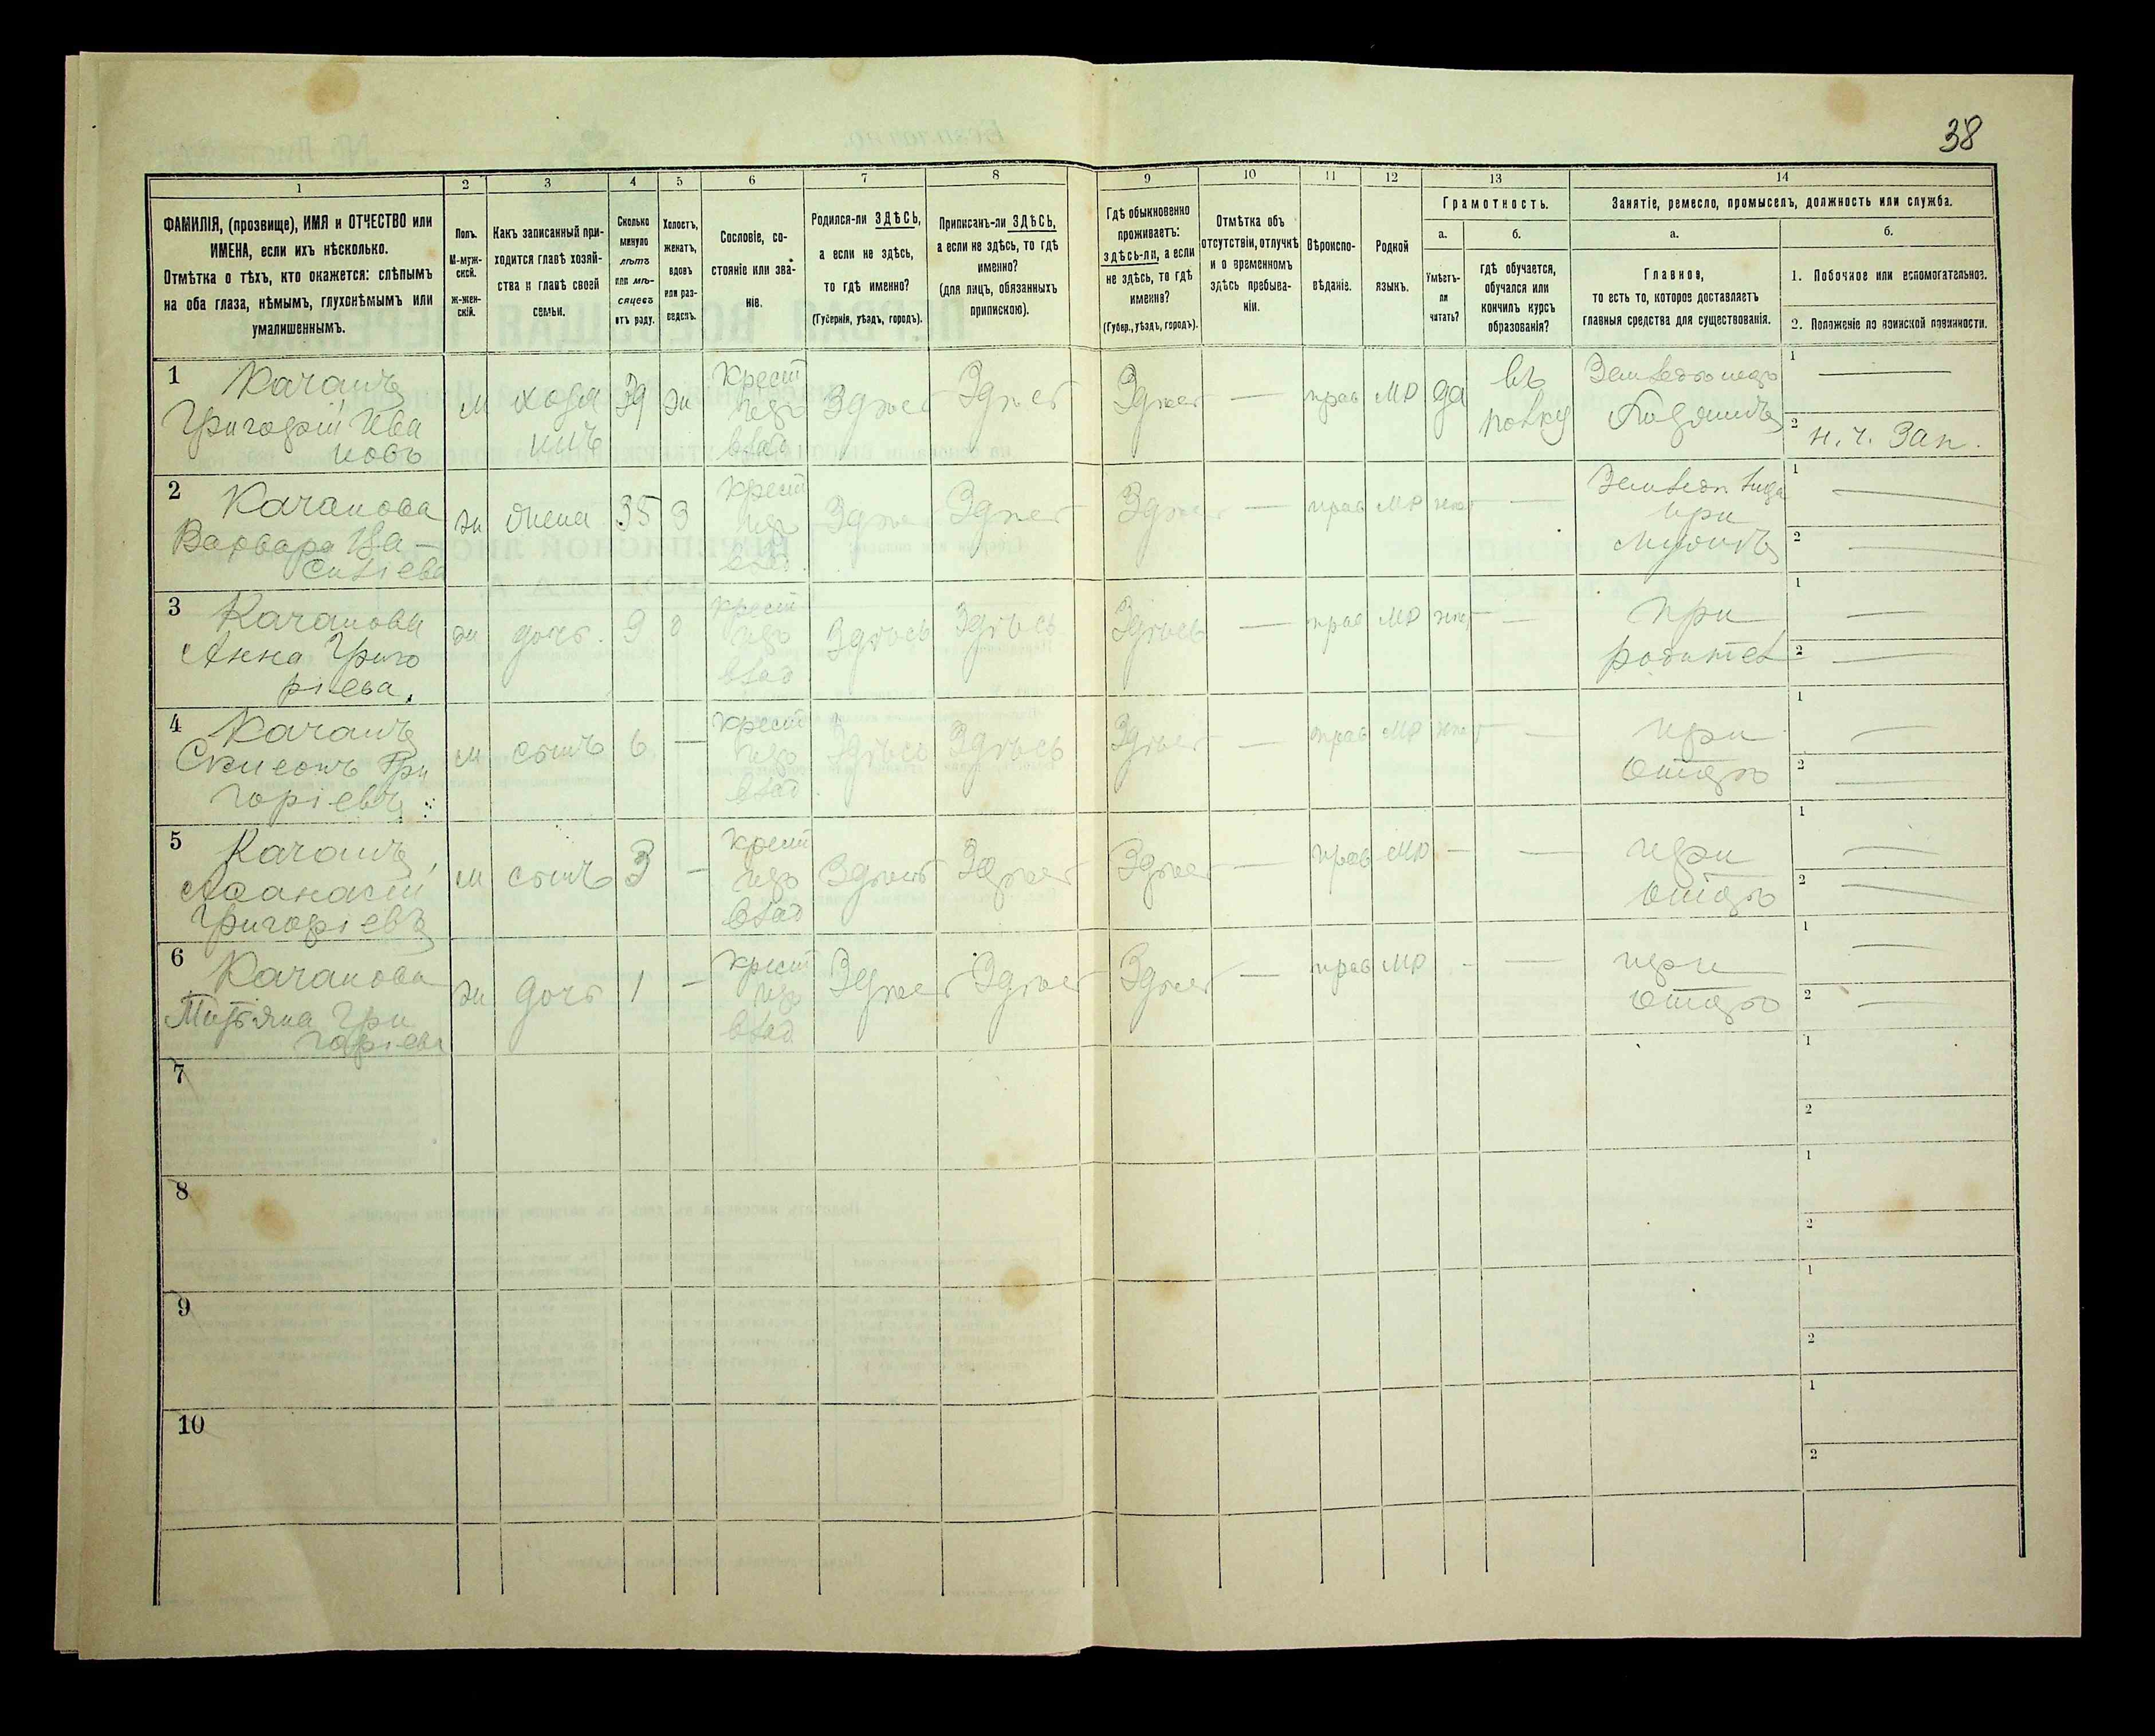 38
1 2 3 4 5 6 7 8 9 10 11 12 13 14
ФАМИЛІЯ, (прозвище), ИМЯ и ОТЧЕСТВО или
ИМЕНА, если ихъ нѣсколько.
Отмѣтка о тѣхъ, кто окажется: слѣпымъ
на оба глаза, нѣмымъ, глухонѣмымъ или
умалишеннымъ.
Полъ.
М-муж-
ской.
ж-жен-
скій.
Какъ записанный при-
ходится главѣ хозяй-
ства и главѣ своей
семьи.
Сколько
минуло
лѣтъ
или мѣ-
сяцевъ
отъ роду.
Холостъ,
женатъ,
вдовъ
или раз-
веденъ.
Сословіе, со-
стояніе или зва-
ніе.
Родился-ли ЗДѢСЬ,
а если не здѣсь,
то гдѣ именно?
(Губернія, уѣздъ, городъ).
Приписанъ-ли ЗДѢСЬ,
а если не здѣсь, то гдѣ
именно?
(для лицъ, обязанныхъ
припискою).
Гдѣ обыкновенно
проживаетъ:
здѣсь-ли, а если
не здѣсь, то гдѣ
именно?
(Губер., уѣздъ, городъ).
Отмѣтка объ
отсутствіи, отлучкѣ
и о временномъ
здѣсь пребыва-
ніи.
Вѣроиспо-
вѣданіе.
Родной
языкъ.
Грамотность.
а.
Умѣетъ-
ли
читать?
б.
гдѣ обучается,
обучался или
кончилъ курсъ
образованія?
Занятіе, ремесло, промыселъ, должность или служба.
а.
Главное,
то есть то, которое доставляетъ
главныя средства для существованія.
б.
1. Побочное или вспомогательное.
2. Положеніе по воинской повинности.
1 Качанъ
Григорій Ива
новъ
м
хозя
инъ
39
ж
крест
изъ
влад
Здѣсь
Здѣсь
Здѣсь
—
прав
МР
да
въ
полку
Хозяинъ
1 —
2 н. ч. Зап.
2 Качанова
Варвара Ва-
силіева
ж
жена
35
З
крест
изъ
влад.
Здѣсь
Здѣсь
Здѣсь
—
прав
МР
нѣт
—
при
мужѣ
1 —
2 —
3 Качанова
Анна Григо
ріева.
ж
дочь.
9
крест
изъ
влад
Здѣсь
Здѣсь
Здѣсь
—
прав
МР
нѣт
—
при
родител
1 —
2 —
4 Качанъ
Симеонъ Гри
горіевъ
м
сынъ
6
—
крест
изъ
влад.
Здѣсь
Здѣсь
Здѣсь
—
прав
МР
нѣт
—
при
отцѣ
1 —
2 —
5 Качанъ
Аѳанасій
Григоріевъ
м
сынъ
3
—
крест
изъ
влад
Здѣсь
Здѣсь
Здѣсь
—
прав
МР
—
—
при
отцѣ
1 —
2 —
6 Качанова
Татіяна Гри
горіева
ж
дочь
1
—
крест
изъ
влад
Здѣсь
Здѣсь
Здѣсь
—
прав
МР
-
—
при
отцѣ
1 —
2 —
7
1
2
8
1
2
9
1
2
10
1
2